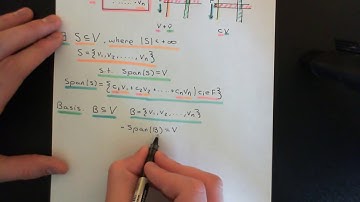 v + v
cv
∃ S ⊆ V, where |S| < +∞
S = {v₁, v₂, ..., vₙ}
s.t. Span(S) = V
Span(S) = {c₁v₁ + c₂v₂ + ... + cₙvₙ | cᵢ ∈ F}
Basis: B ⊆ V B = {v₁, v₂, ..., vₙ}
- Span(B) = V